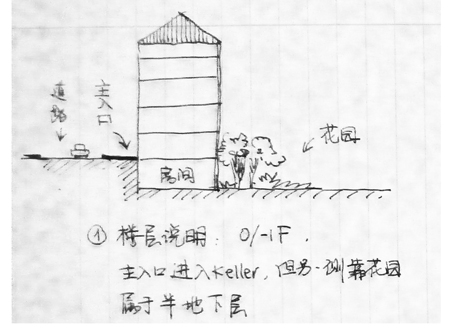 道路
主入口
花园
房间
① 楼层说明: 0/-1F.
主入口进入Keller, 但另一侧靠花园
属于半地下层